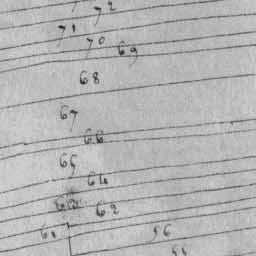 72
71
70 69
68
67
66
65
64
62
61 56